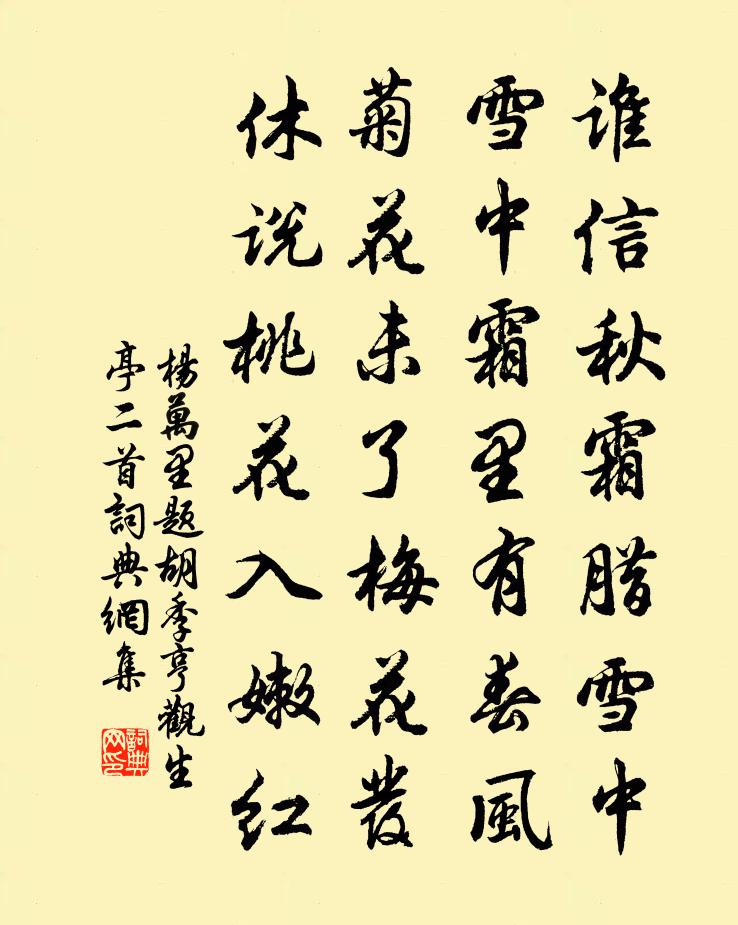 谁信秋霜腊雪中
雪中霜里有春風
菊花未了梅花發
休说桃花入嫩红
楊萬里题胡季亨觀生
亭二首詞典網集
詞典
网印